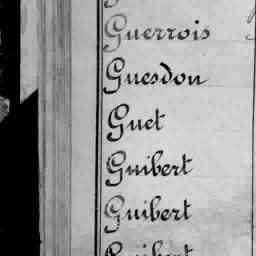 Guerrois
Guesdon
Guet
Guibert
Guibert
Guibert